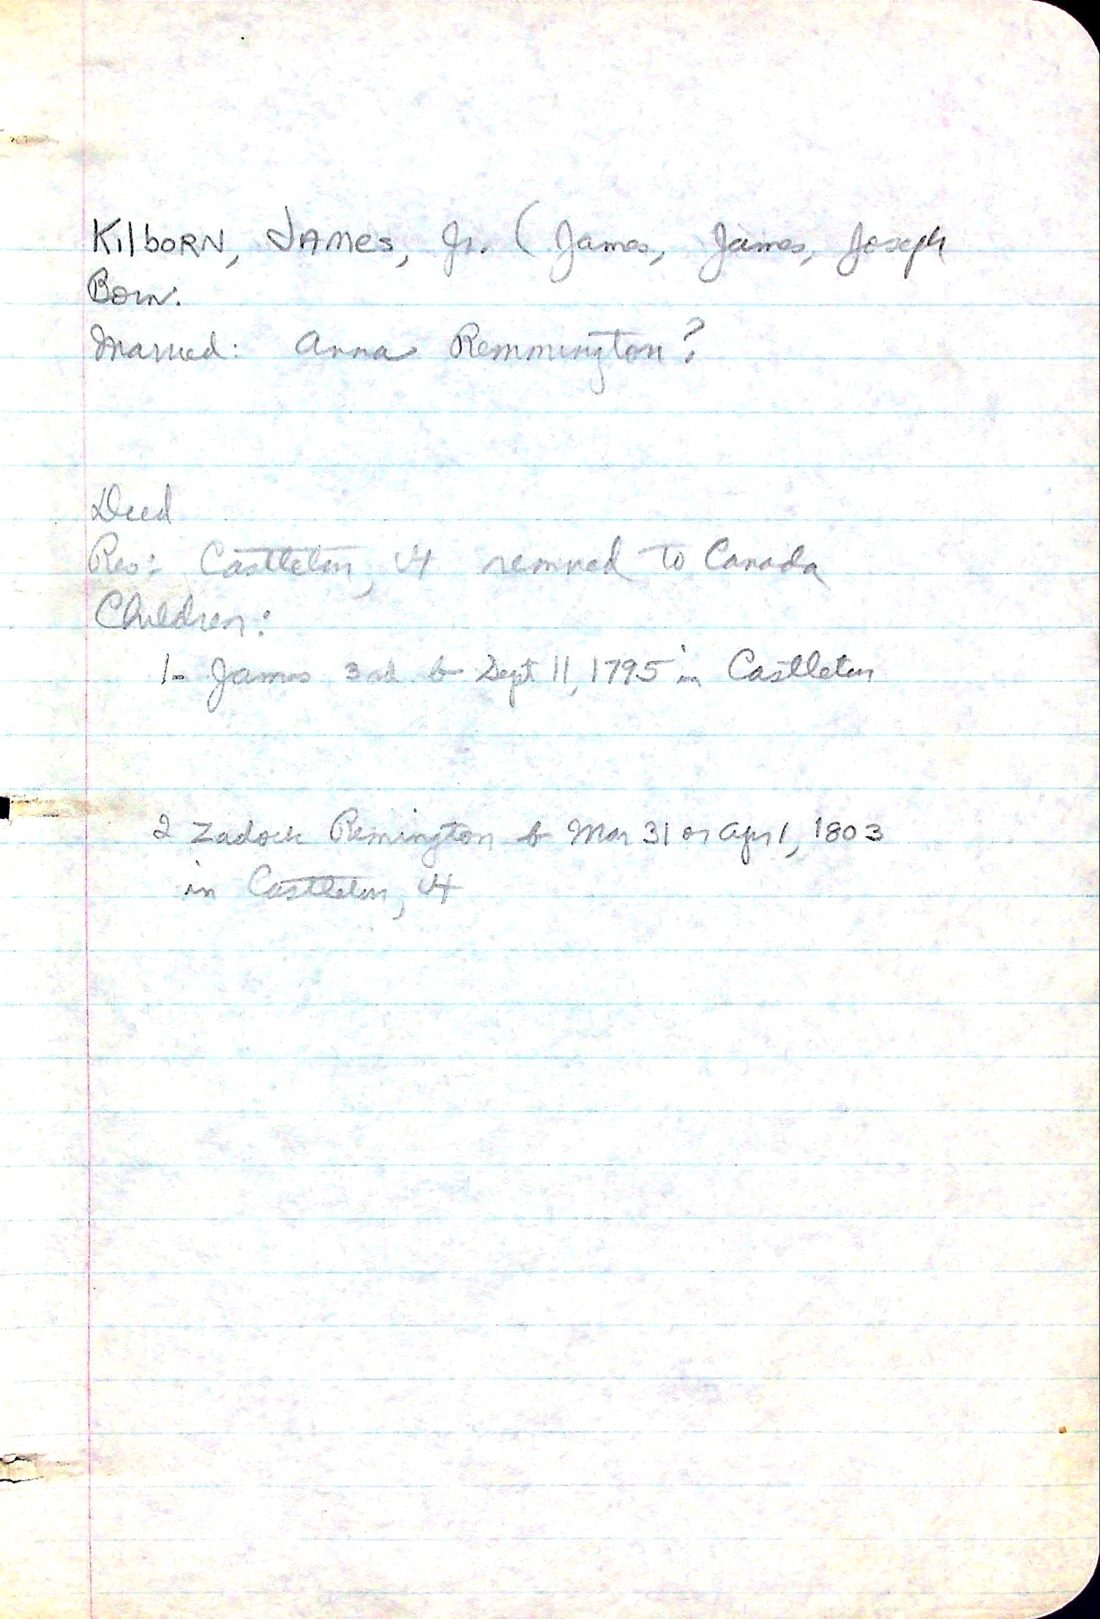 Kilborn, James, Jr. (James, James, Joseph
Born:
Married: Anna Remmington?
Died
Res: Castleton, Vt removed to Canada
Children:
1- James 3rd b- Sept 11, 1795 in Castleton
2 Zadock Remington b Mar 31 or Apr 1, 1803
in Castleton, Vt